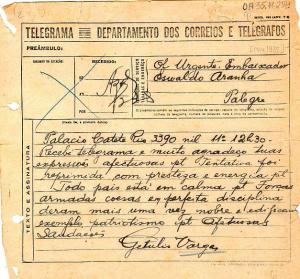 OA 35.11.29/1
TELEGRAMA DEPARTAMENTO DOS CORREIOS E TELÉGRAFOS
PREÂMBULO:
RECEBIDO
Of Urgente. Embaixador
Oswaldo Aranha
Palegre
Palacio Catete Rio 3390 nil 11 12h30
Recebi telegrama e muito agradeço suas
expressões afectuosas pt Tentativa foi
reprimida com presteza e energia pt
Todo paiz está em calma pt Forças
armadas coesas em perfeita disciplina
deram mais uma vez nobre e edificante
exemplo patriotismo pt Afetuosas
Saudações
Getulio Vargas
TEXTO E ASSINATURA